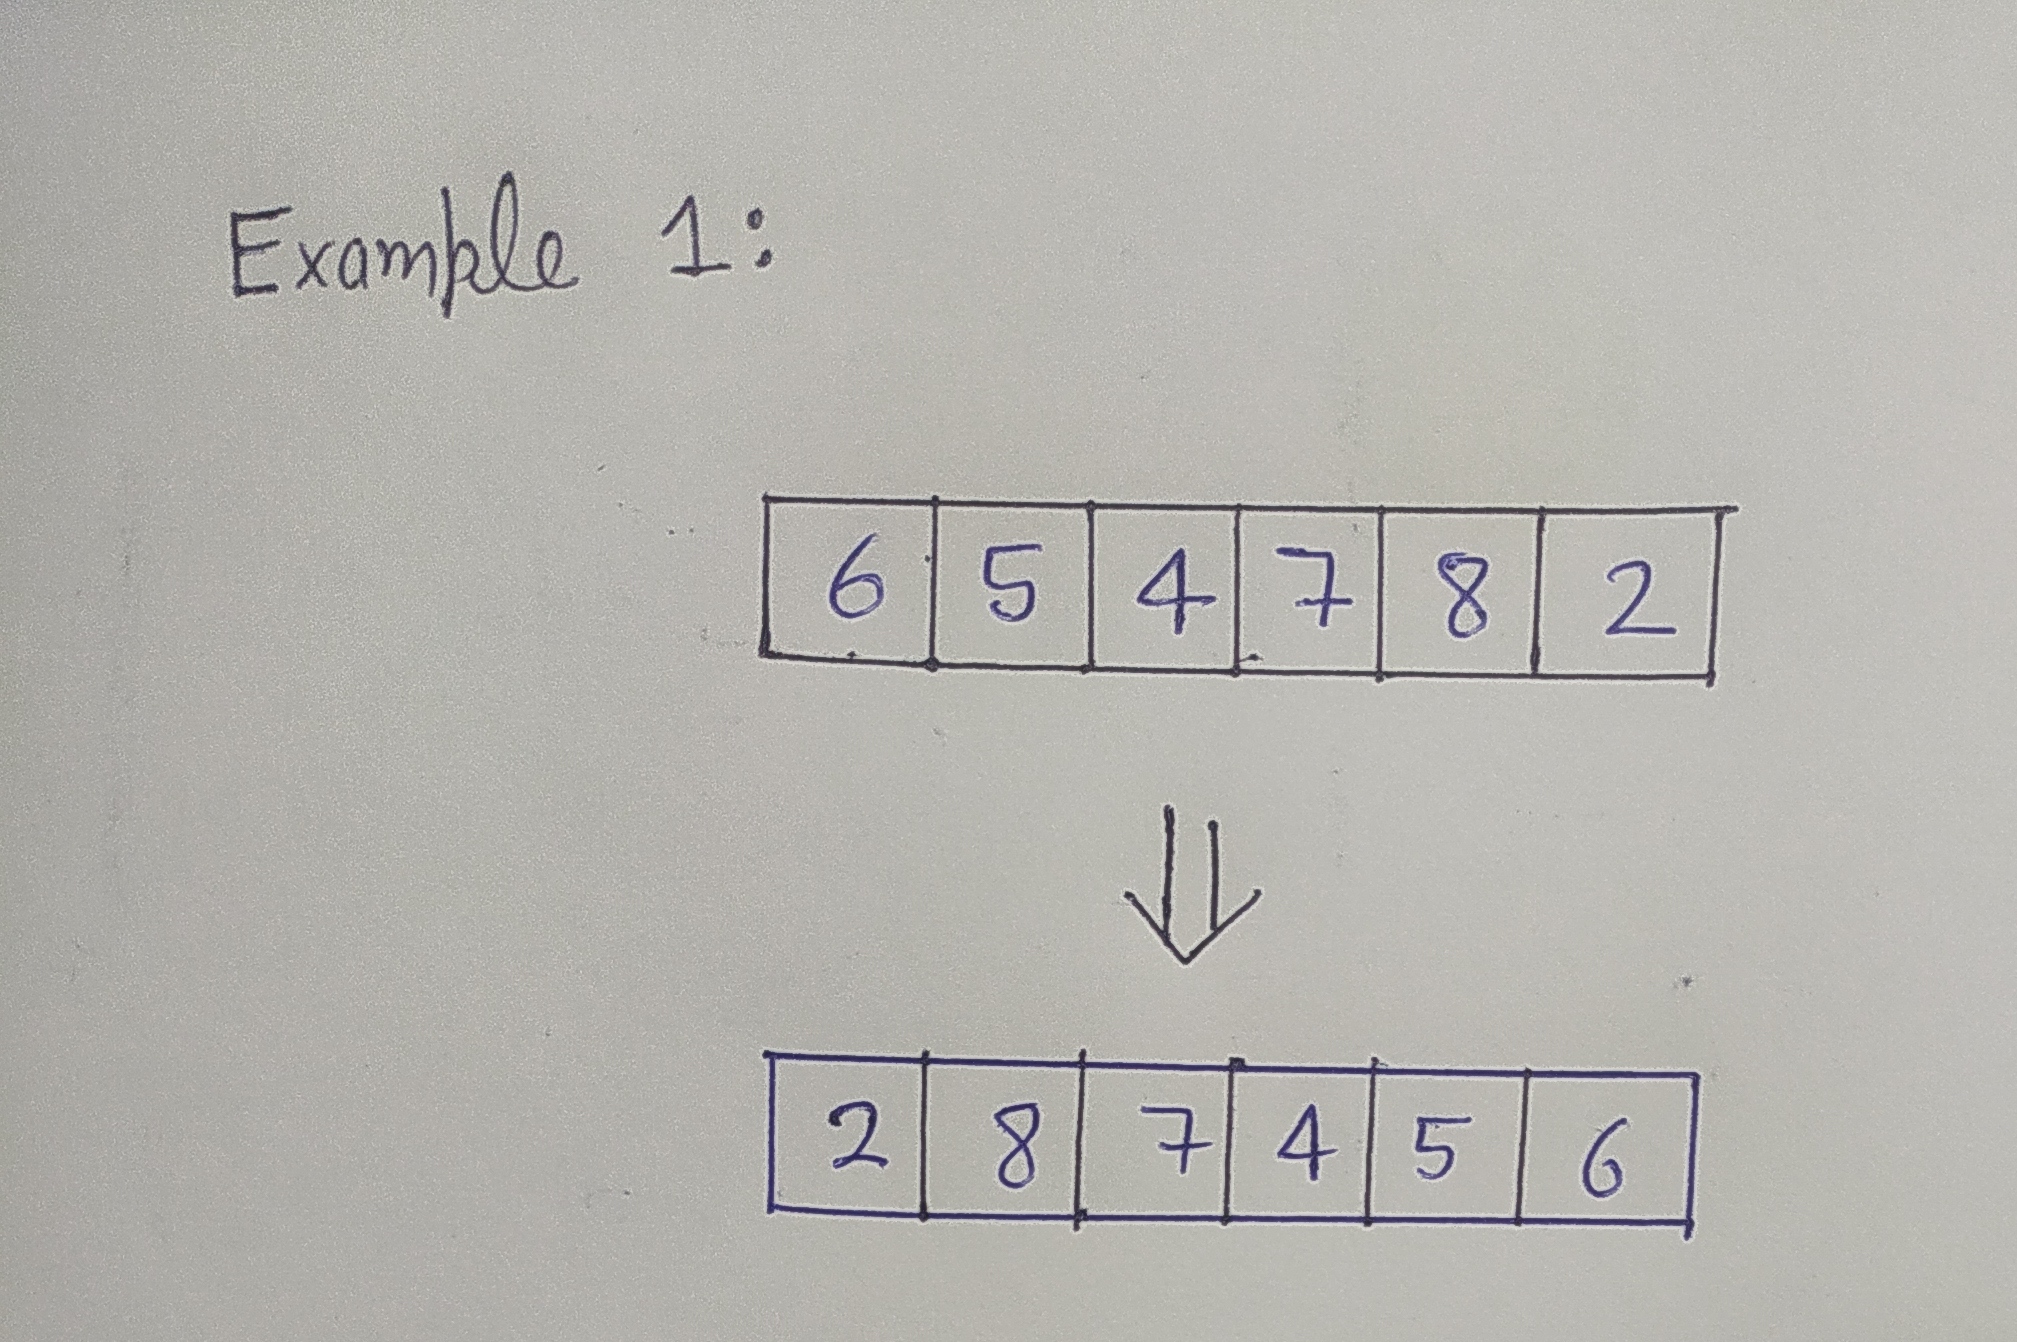 Example 1:
6 5 4 7 8 2
2 8 7 4 5 6